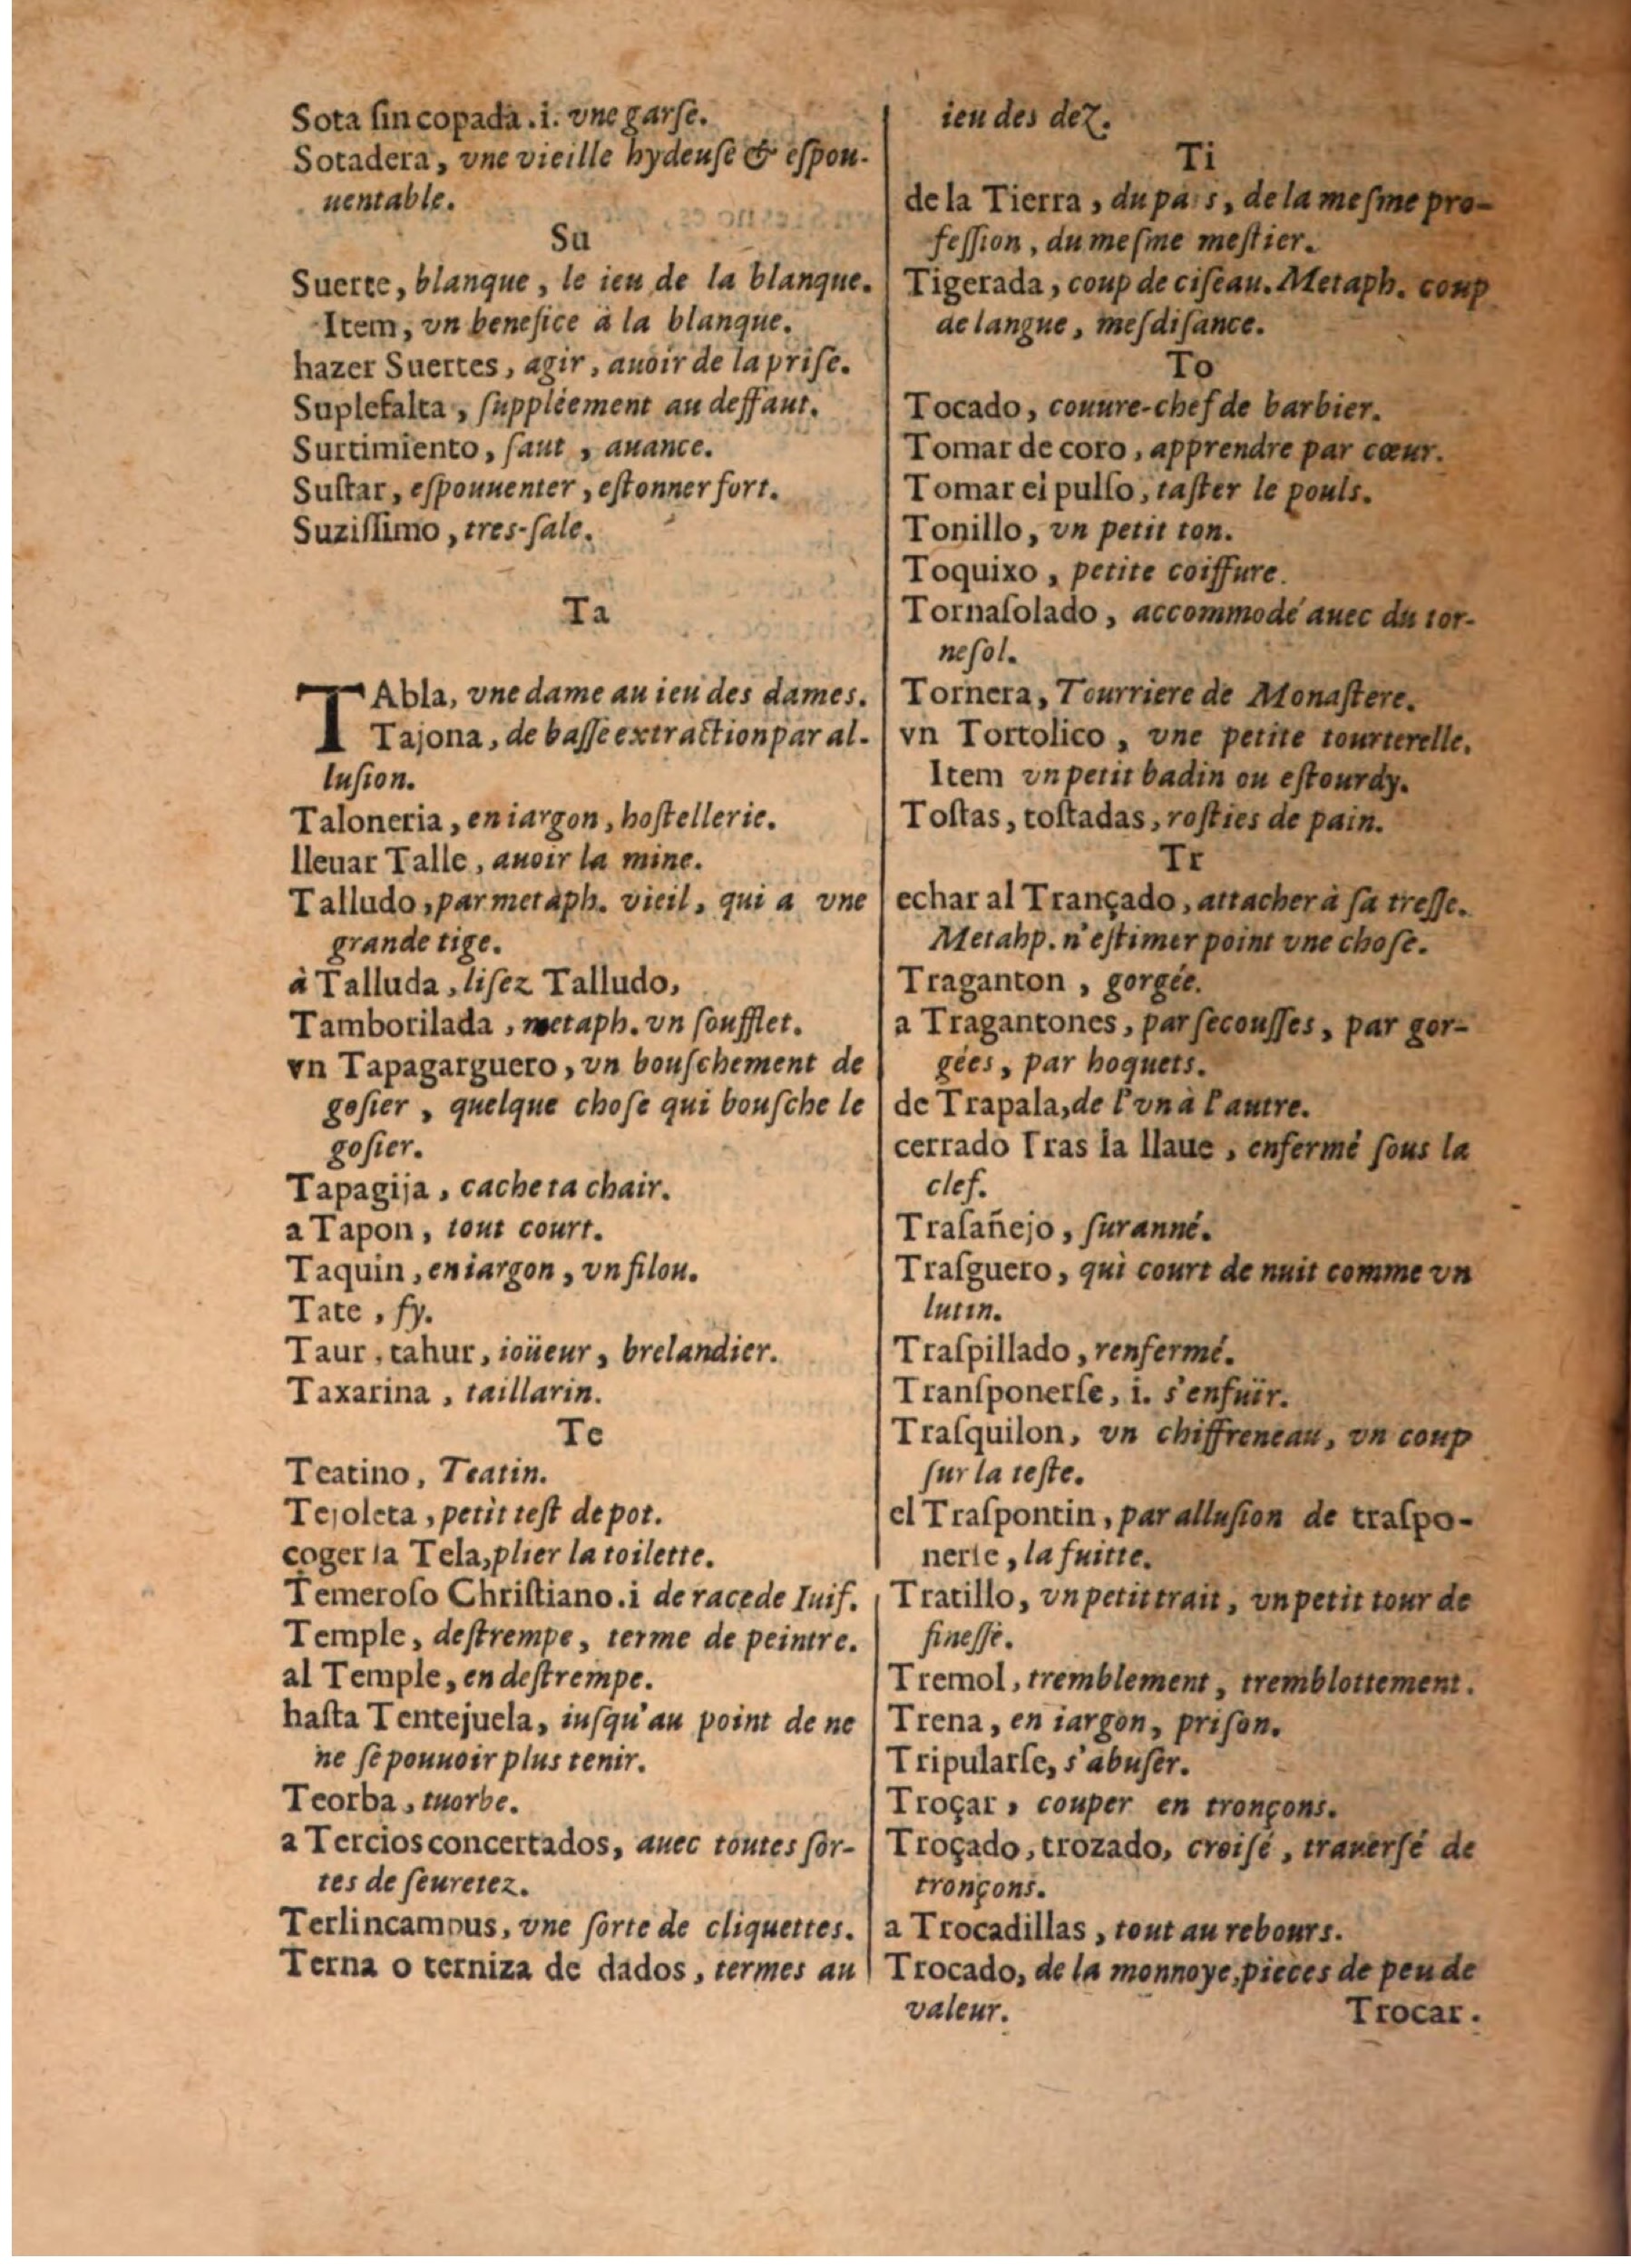 Sota ſincopada.i. vne garſe.
Sotadera, vne vieille hydeuſe & eſpou-
uentable.
Su
Suerte, blanque, le ieu de la blanque.
Item, vn beneſice à la blanque.
hazer Suertes, agir, auoir de la priſe.
Suplefalta, ſuppléement au deffaut.
Surtimiento, ſaut, auance.
Suſtar, eſpouuenter, eſtonner fort.
Suziſſimo, tres-ſale.
Ta
TAbla, vne dame au ieu des dames.
Tajona, de baſſe extraction par al-
luſion.
Taloneria, en iargon, hoſtellerie.
lleuar Talle, auoir la mine.
Talludo, par metaph. vieil, qui a vne
grande tige.
à Talluda, liſez Talludo,
Tamborilada, metaph. vn ſoufflet.
vn Tapagarguero, vn bouſchement de
goſier, quelque choſe qui bouſche le
goſier.
Tapagija, cache ta chair.
a Tapon, tout court.
Taquin, en iargon, vn filou.
Tate, fy.
Taur, tahur, ioüeur, brelandier.
Taxarina, taillarin.
Te
Teatino, Teatin.
Tejoleta, petit teſt de pot.
coger la Tela, plier la toilette.
Temeroſo Chriſtiano.i de race de Iuif.
Temple, deſtrempe, terme de peintre.
al Temple, en deſtrempe.
haſta Tentejuela, iuſqu'au point de ne
ne ſe pouuoir plus tenir.
Teorba, tuorbe.
a Tercios concertados, auec toutes ſor-
tes de ſeuretez.
Terlincampus, vne ſorte de cliquettes.
Terna o terniza de dados, termes au
ieu des dez.
Ti
de la Tierra, du païs, de la meſme pro-
feſſion, du meſme meſtier.
Tigerada, coup de ciſeau. Metaph. coup
de langue, meſdiſance.
To
Tocado, couure-chef de barbier.
Tomar de coro, apprendre par cœur.
Tomar el pulſo, taſter le pouls.
Tonillo, vn petit ton.
Toquixo, petite coiffure.
Tornaſolado, accommodé auec du tor-
neſol.
Tornera, Tourriere de Monaſtere.
vn Tortolico, vne petite tourterelle.
Item vn petit badin ou eſtourdy.
Toſtas, toſtadas, roſties de pain.
Tr
echar al Trançado, attacher à ſa treſſe.
Metahp. n'eſtimer point vne choſe.
Traganton, gorgée.
a Tragantones, par ſecouſſes, par gor-
gées, par hoquets.
de Trapala, de l'vn à l'autre.
cerrado Tras la llaue, enfermé ſous la
clef.
Traſañejo, ſuranné.
Traſguero, qui court de nuit comme vn
lutin.
Traſpillado, renfermé.
Tranſponerſe, i. s'enfuïr.
Traſquilon, vn chiffreneau, vn coup
ſur la teſte.
el Traſpontin, par alluſion de traſpo-
nerſe, la fuitte.
Tratillo, vn petit trait, vn petit tour de
fineſſe.
Tremol, tremblement, tremblottement.
Trena, en iargon, priſon.
Tripularſe, s'abuſer.
Troçar, couper en tronçons.
Troçado, trozado, croiſé, trauerſé de
tronçons.
a Trocadillas, tout au rebours.
Trocado, de la monnoye, pieces de peu de
valeur. Trocar.